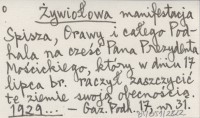 Żywiołowa manifestacja
Spisza, Orawy i całego Pod-
hala na cześć Pana Prezydenta
Mościckiego, który w dniu 17
lipca br. raczył zaszczycić
te ziemie swoją obecnością.
1929... – Gaz. Podh. 17, nr 31.